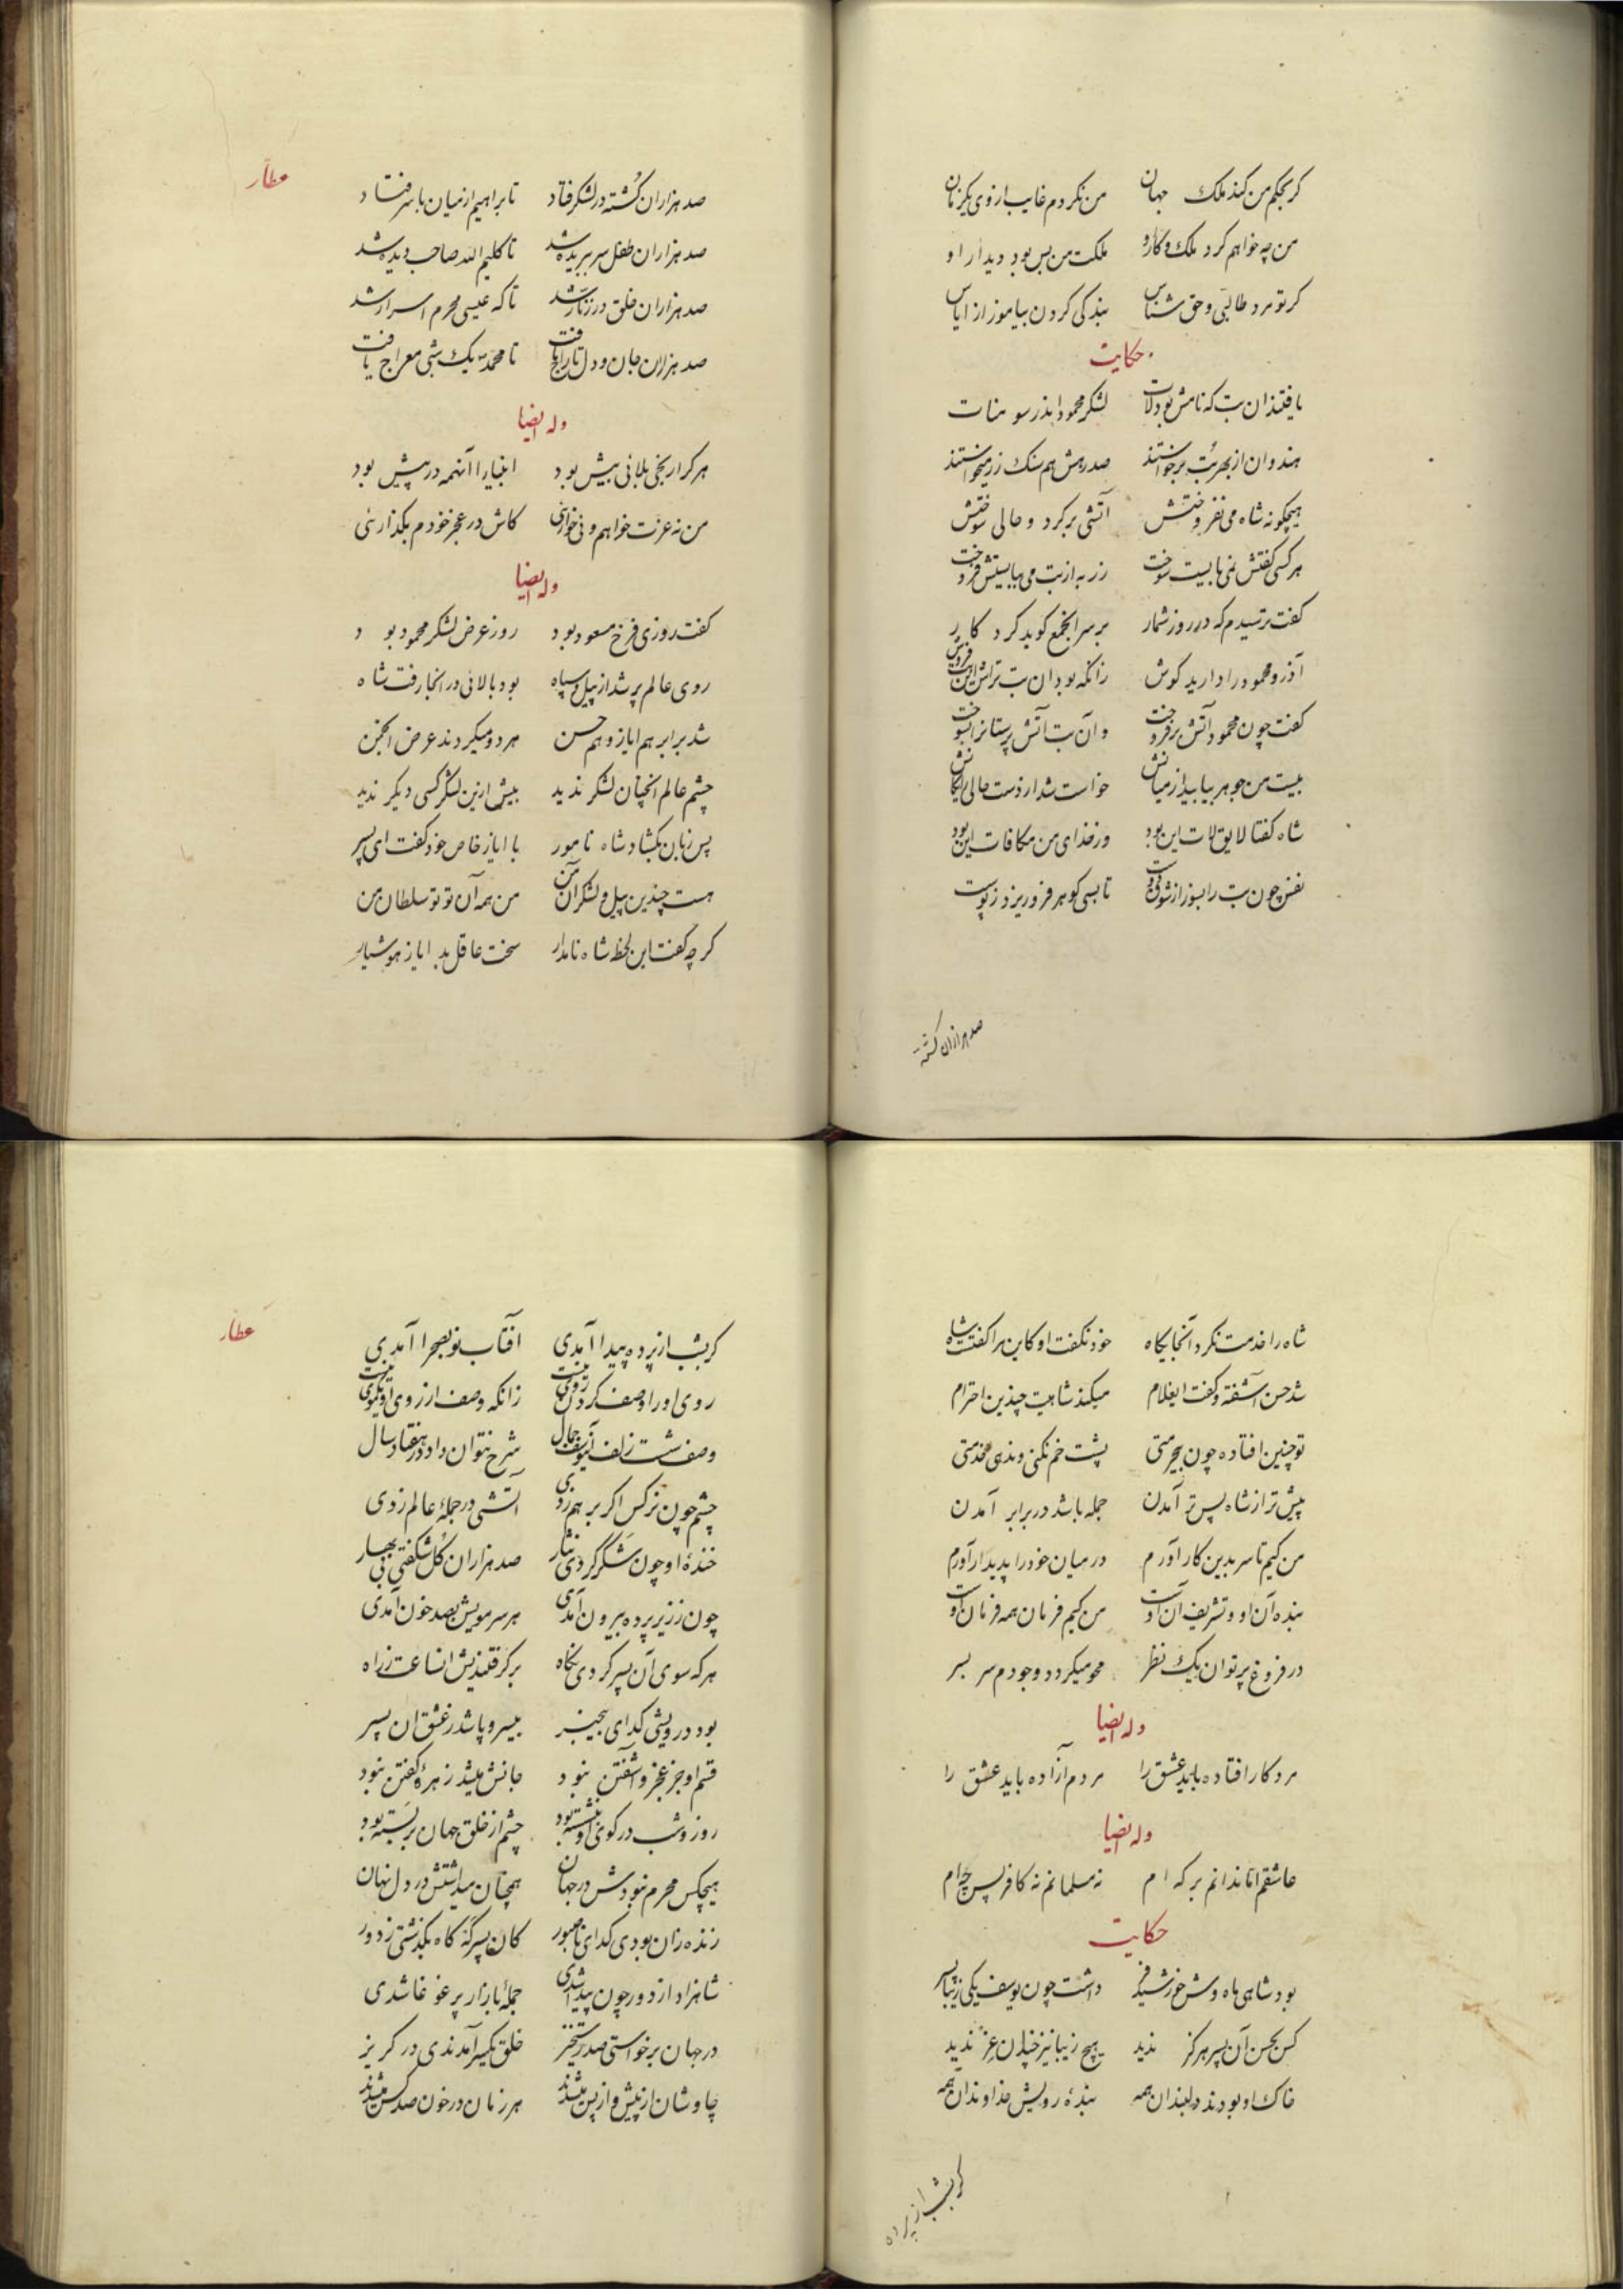 کر بحکم من کند ملک جهان من نکردم غایب از وی یکزمان
من چه خواهم کرد ملک و کار او ملکت من بس بود دیدار او
کر تو مرد طالبی و حق شناس بندکی کردن بیاموز از ایاس
حکایت
یافتند ان بت که نامش بود لات لشکر محمود اندر سومنات
هندوان از بهر بت برخواستند صد رهش هم سنک زر میخواستند
هیچکونه شاه می نفروختش آتشی برکرد و حالی سوختش
هر کسی کفتش نمی بایست سوخت زر به از بت می ببایستش فروخت
کفت ترسیدم که در روز شمار بر سر انجمع کوید کردکار
آذر و محمود را دارید کوش زانکه بود ان بت تراش این بت فروش
کفت چون محمود آتش برفروخت و آن بت آتش پرستانرا بسوخت
بیست من جوهر بیامد از میانش خواست شد از دست حالی رایکانش
شاه کفتا لایق لات این بود وز خدای من مکافات این بود
نفس چون بت را بسوز از شوق دوست تا بسی کوهر فرو ریزد ز پوست
صد هزاران کشته
عطار
صد هزاران کشته در لشکر فتاد تا براهیم از میان با سر فتاد
صد هزاران طفل سر ببریده شد تا کلیم الله صاحب دیده شد
صد هزاران خلق در زنار شد تا که عیسی محرم اسرار شد
صد هزاران جان و دل تاراج یافت تا محمد یک شبی معراج یافت
وله ایضا
هر کرا رنجی بلائی بیش بود انبیا را آنهمه در پیش بود
من نه عزت خواهم و نی خوارئی کاش در عجز خودم بکذارئی
وله ایضا
کفت روزی فرخ مسعود بود روز عرض لشکر محمود بود
روی عالم پر شد از پیل و سپاه بود بالائی در انجا رفت شاه
شد برابر هم ایاز و هم حسن هر دو میکردند عرض انجمن
چشم عالم انچنان لشکر ندید بیش ازین لشکر کسی دیکر ندید
پس زبان بکشاد شاه نامور با ایاز خاص خود کفت ای پسر
هست چندین پیل و لشکر آن من من همه آن تو تو سلطان من
کر چه کفت این لحظ شاه نامدار سخت عاقل بد ایاز هوشیار
شاه را خدمت نکرد آنجایکاه خود نکفت او کاین مرا کفتست شاه
شد حسن آشفته و کفت ایغلام میکند شاهیت چندین احترام
تو چنین افتاده چون بیحرمتی پشت خم نکنی و ندهی خدمتی
پیش تر از شاه پس تر آمدن جمله باشد در برابر آمدن
من کیم تا سر بدین کار آورم در میان خود را پدیدار آورم
بنده آن او و تشریف آن اوست من کیم فرمان همه فرمان اوست
در فروغ پرتو ان یک نظر محو میکردد وجودم سر بسر
وله ایضا
مرد کار افتاده باید عشق را مردم آزاده باید عشق را
وله ایضا
عاشقم اما ندانم بر که ام نه مسلمانم نه کافر پس چه ام
حکایت
بود شاهی ماه وش خورشید فر داشت چون یوسف یکی زیبا پسر
کس بحسن آن پسر هرکز ندید هیچ زیبا نیز چندان عز ندید
خاک او بودند دلبندان همه بنده رویش خداوندان همه
کر بشب از پرده
عطار
کر بشب از پرده پیدا آمدی آفتاب نو بصحرا آمدی
روی او را وصف کردن روی نیست زانکه وصف از روی او یکموی نیست
وصف شست زلف آنیوسف جمال شرح نتوان داد در هفتاد سال
چشم چون نرکس اکر بر هم زدی آتشی در جمله عالم زدی
خنده او چون شکر کردی نثار صد هزاران کل شکفتی بی بهار
چون ز زیر پرده بیرون آمدی هر سر مویش بصد خون آمدی
هر که سوی آن پسر کردی نکاه برکرفتندیش انساعت ز راه
بود درویشی کدای بیخبر بیسر و پا شد ز عشق ان پسر
قسم او جز عجز و آشفتن نبود جانش میشد زهره کفتن نبود
روز و شب در کوی او بنشسته بود چشم از خلق جهان بر بسته بود
هیچکس محرم نبودش در جهان همچنان میداشتش در دل نهان
زنده زان بودی کدای ناصبور کان پسر که کاه بکذشتی ز دور
شاهزاد از دور چون پیدا شدی جمله بازار پر غوغا شدی
در جهان برخواستی صد رستخیز خلق یکسر آمدندی در کریز
چاوشان از پیش و از پس میشدند هر زمان در خون صد کس میشدند